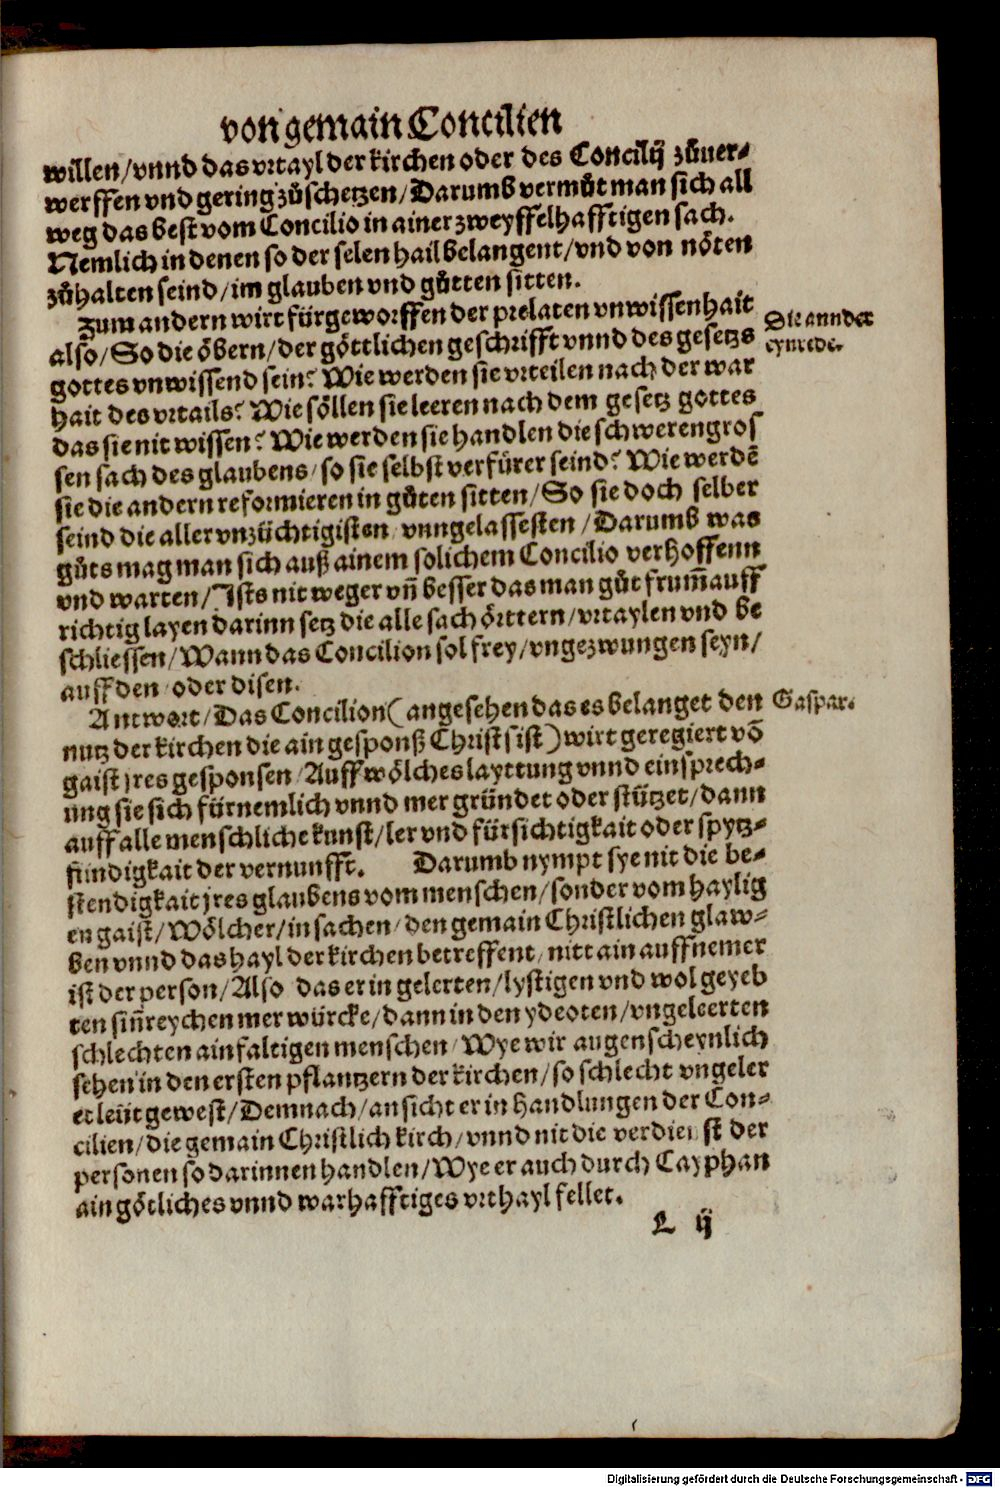 von gemain Concilien
willen/vnnd das vrtayl der kirchen oder des Concilij zůuer-
werffen vnd gering zůschetzen/Darumb vermůt man sich all
weg das best vom Concilio in ainer zweyffelhafftigen sach.
Nemlich in denen so der selen hail belangent/vnd von nöten
zůhalten seind/im glauben vnd gůtten sitten.
Zum andern wirt fürgeworffen der prelaten vnwissenhait
Die annder
also/So die öbern/der göttlichen geschrifft vnnd des gesetzs
eynrede.
gottes vnwissend sein? Wie werden sie vrteilen nach der war
hait des vrtails? Wie söllen sie leeren nach dem gesetz gottes
das sie nit wissen? Wie werden sie handlen die schweren gros
sen sach des glaubens/so sie selbst verfürer seind? Wie werdē
sie die andern reformieren in gůten sitten/So sie doch selber
seind die aller vnzüchtigisten/vnngelassesten/Darumb was
gůts mag man sich auß ainem solichem Concilio verhoffenn
vnd warten/Ists nit weger vñ besser das man gůt frum̄ auff
richtig layen darinn setz die alle sach örttern/vrtaylen vnd be
schliessen/Wann das Concilion sol frey/vngezwungen seyn/
auff den/oder disen.
Antwort/Das Concilion(angesehen das es belanget den
Gaspar.
nutz der kirchen die ain gesponß Christs ist)wirt geregiert vō
gaist jres gesponsen/Auff wölches layttung vnnd einsprech-
ung sie sich fürnemlich vnnd mer gründet oder stützet/dann
auff alle menschliche kunst/ler vnd fürsichtigkait oder spytz-
findigkait der vernunfft. Darumb nympt sye nit die be-
stendigkait jres glaubens vom menschen/sonder vom haylig
en gaist/Wölcher/in sachen/den gemain Christlichen glaw-
ben vnnd das hayl der kirchen betreffent/nitt ain auffnemer
ist der person/Also das er in gelerten/lystigen vnd wol geyeb
ten siñreychen mer würcke/dann in den ydeoten/vngeleerten
schlechten ainfaltigen menschen/Wye wir augenscheynlich
sehen in den ersten pflantzern der kirchen/so schlecht vngeler
et leüt gewest/Demnach/ansicht er in handlungen der Con-
cilien/die gemain Christlich kirch/vnnd nit die verdienst der
personen so darinnen handlen/Wye er auch durch Cayphan
ain götliches vnnd warhafftiges vrthayl fellet.
L ij
Digitalisierung gefördert durch die Deutsche Forschungsgemeinschaft - DFG